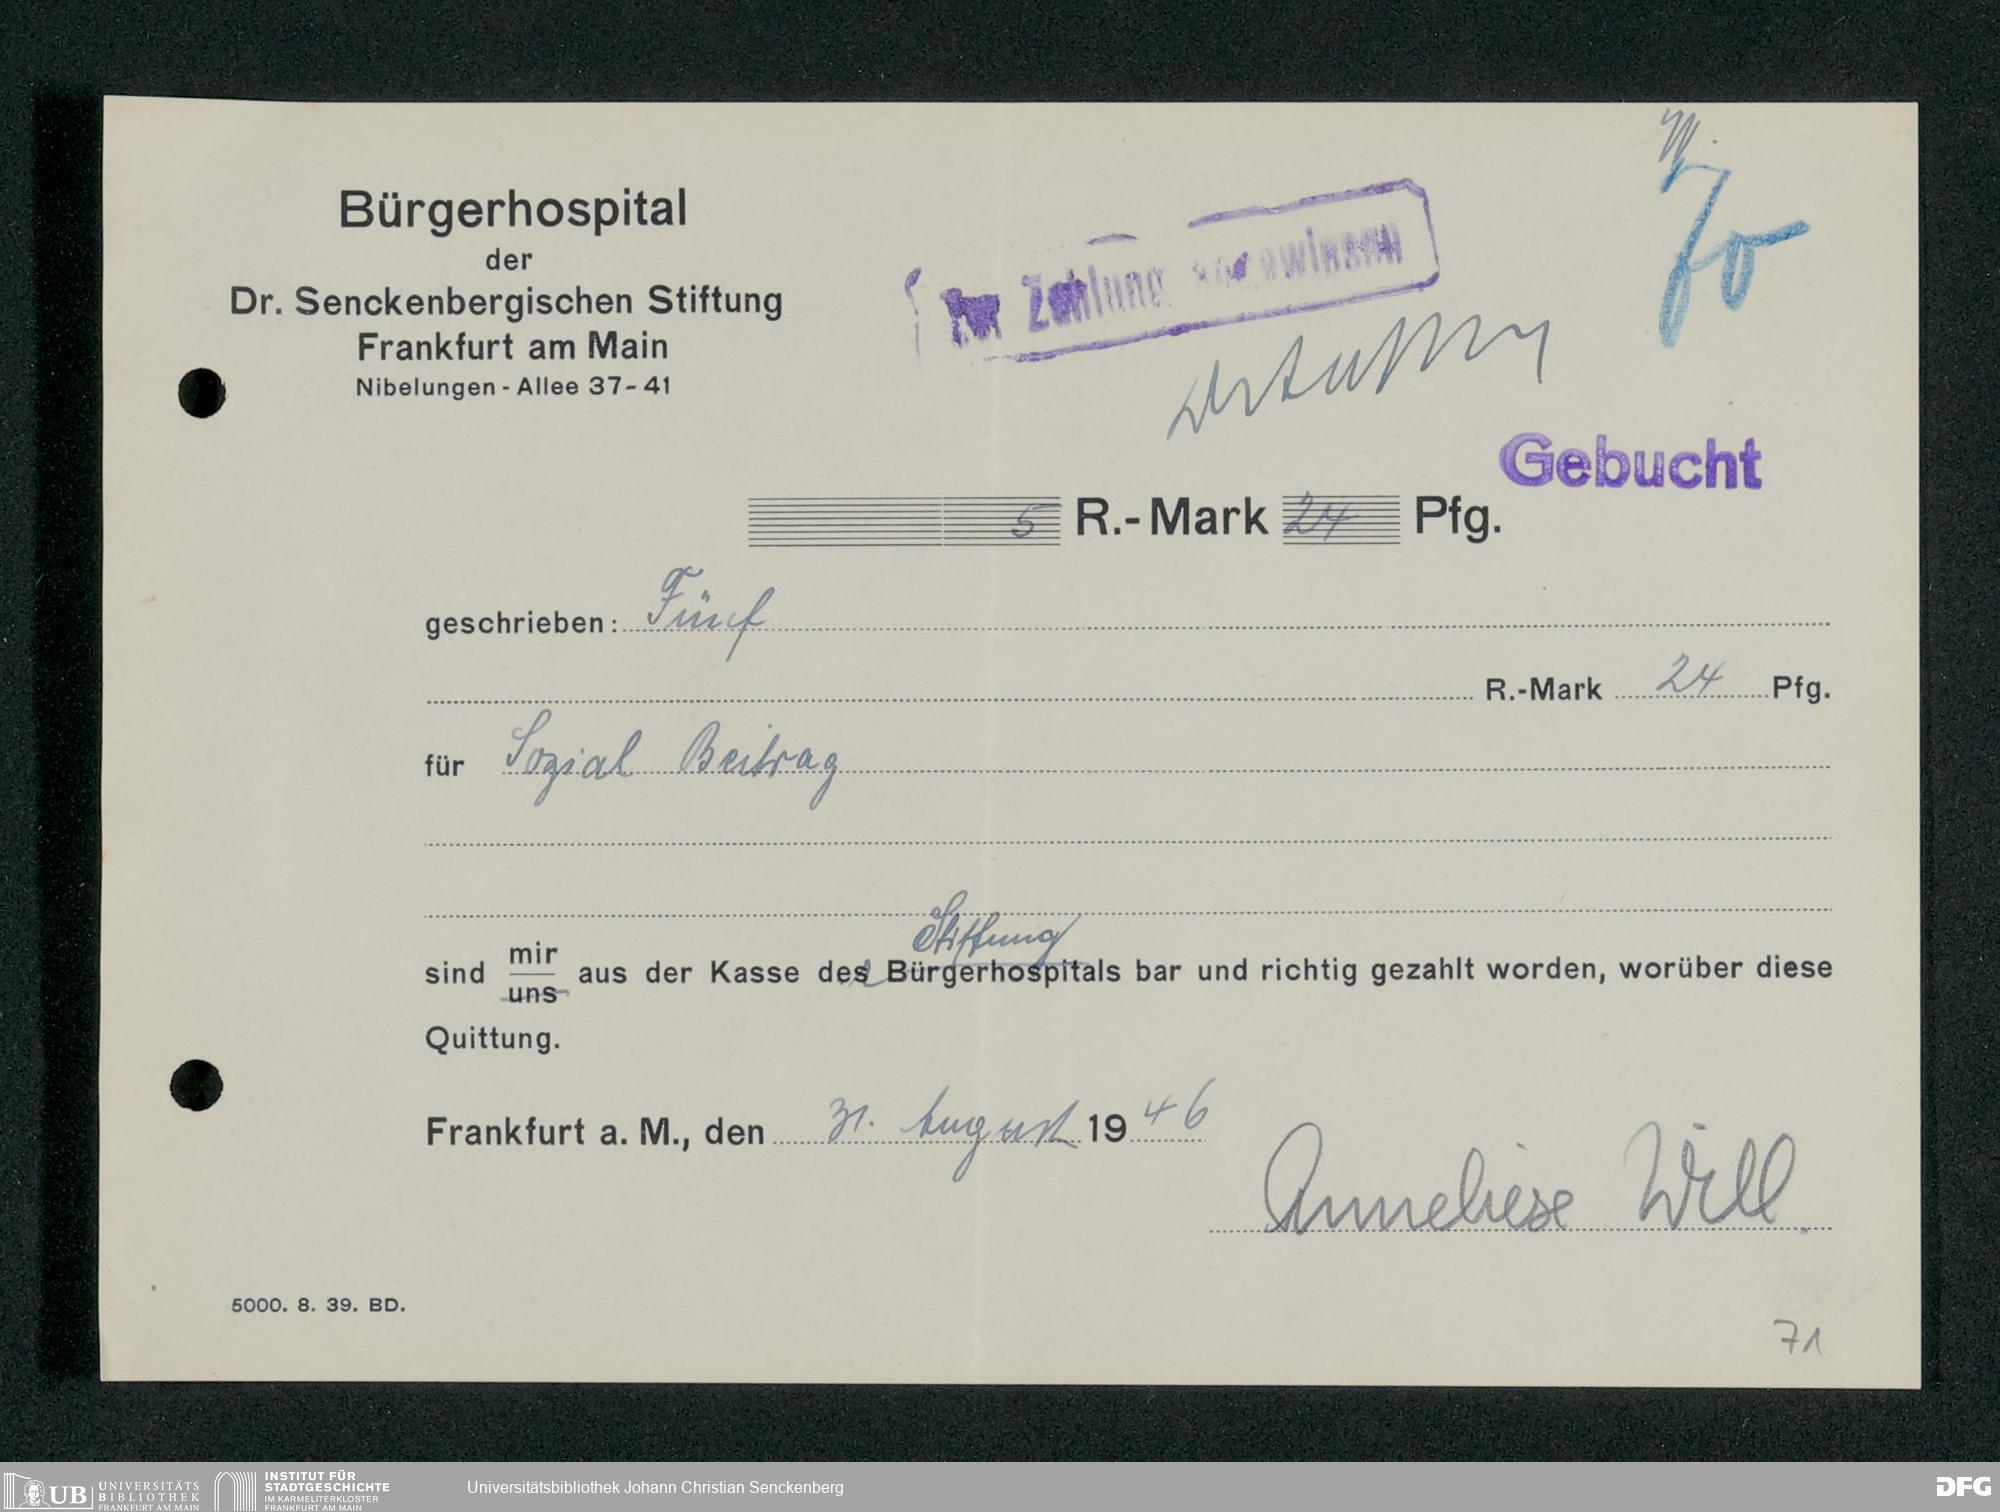 Bürgerhospital
der
Dr. Senckenbergischen Stiftung
Frankfurt am Main
Nibelungen - Allee 37-41
Zur Zahlung angewiesen
70
Gebucht
5 R.-Mark 24 Pfg.
geschrieben: Fünf
R.-Mark 24 Pfg.
für Sozial Beitrag
Stiftung
sind mir aus der Kasse der Bürgerhospitals bar und richtig gezahlt worden, worüber diese
uns
Quittung.
Frankfurt a. M., den 31. August 1946
Anneliese Will
5000. 8. 39. BD.
71
UB UNIVERSITÄTS
BIBLIOTHEK
FRANKFURT AM MAIN
INSTITUT FÜR
STADTGESCHICHTE
IM KARMELITERKLOSTER
FRANKFURT AM MAIN
Universitätsbibliothek Johann Christian Senckenberg
DFG